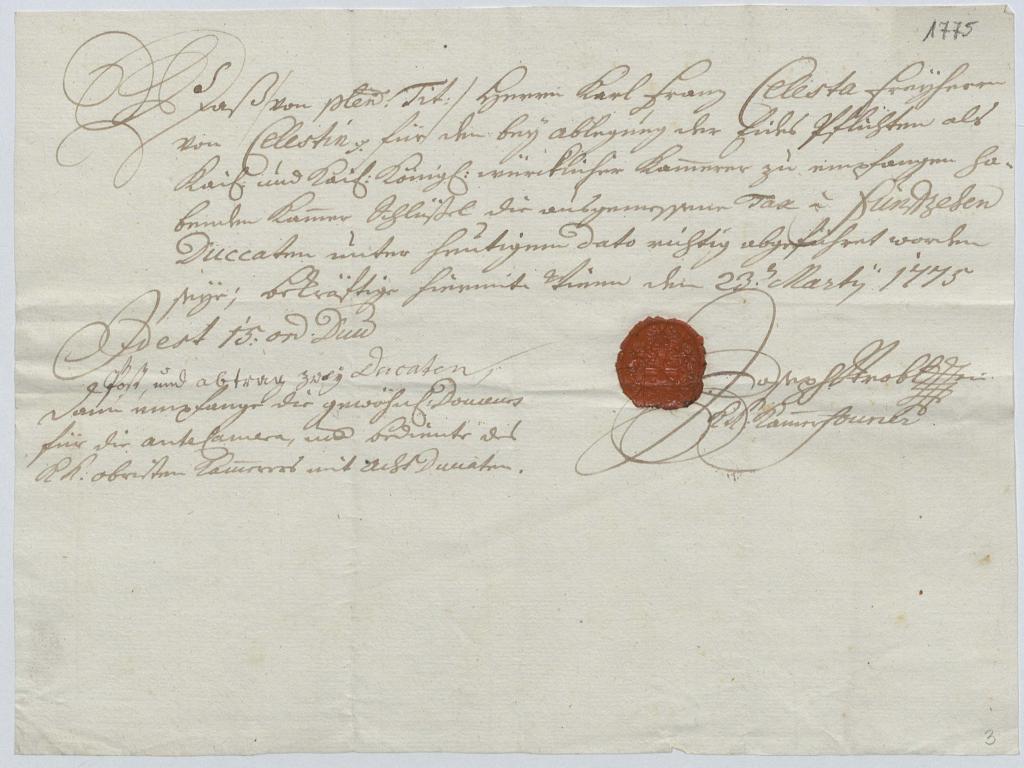 1775
Daß /von plen: Tit:/ Herrn Karl Franz Celesta Freyherrn
von Celestin für den bey ablegung der Eides Pflichten als
Kais: und Kais: Königl: würcklicher Kammerer zu empfangen ha-
benden Kammer Schlüßel die ausgemessene Tax à Fünfzehen
Duccaten unter heutigem dato richtig abgeführet worden
seye; bekräftige hiermit Wienn den 23.t Martij 1775
Idest 15. ord. Duc
und abtrag zwey Ducaten,
Dann empfange die gewöhnl: Douceurs
für die antecamera, und bediente des
K.K. obristen Kammerers mit acht Ducaten.
Joseph Strobl
K.K. Kammerfourier
3